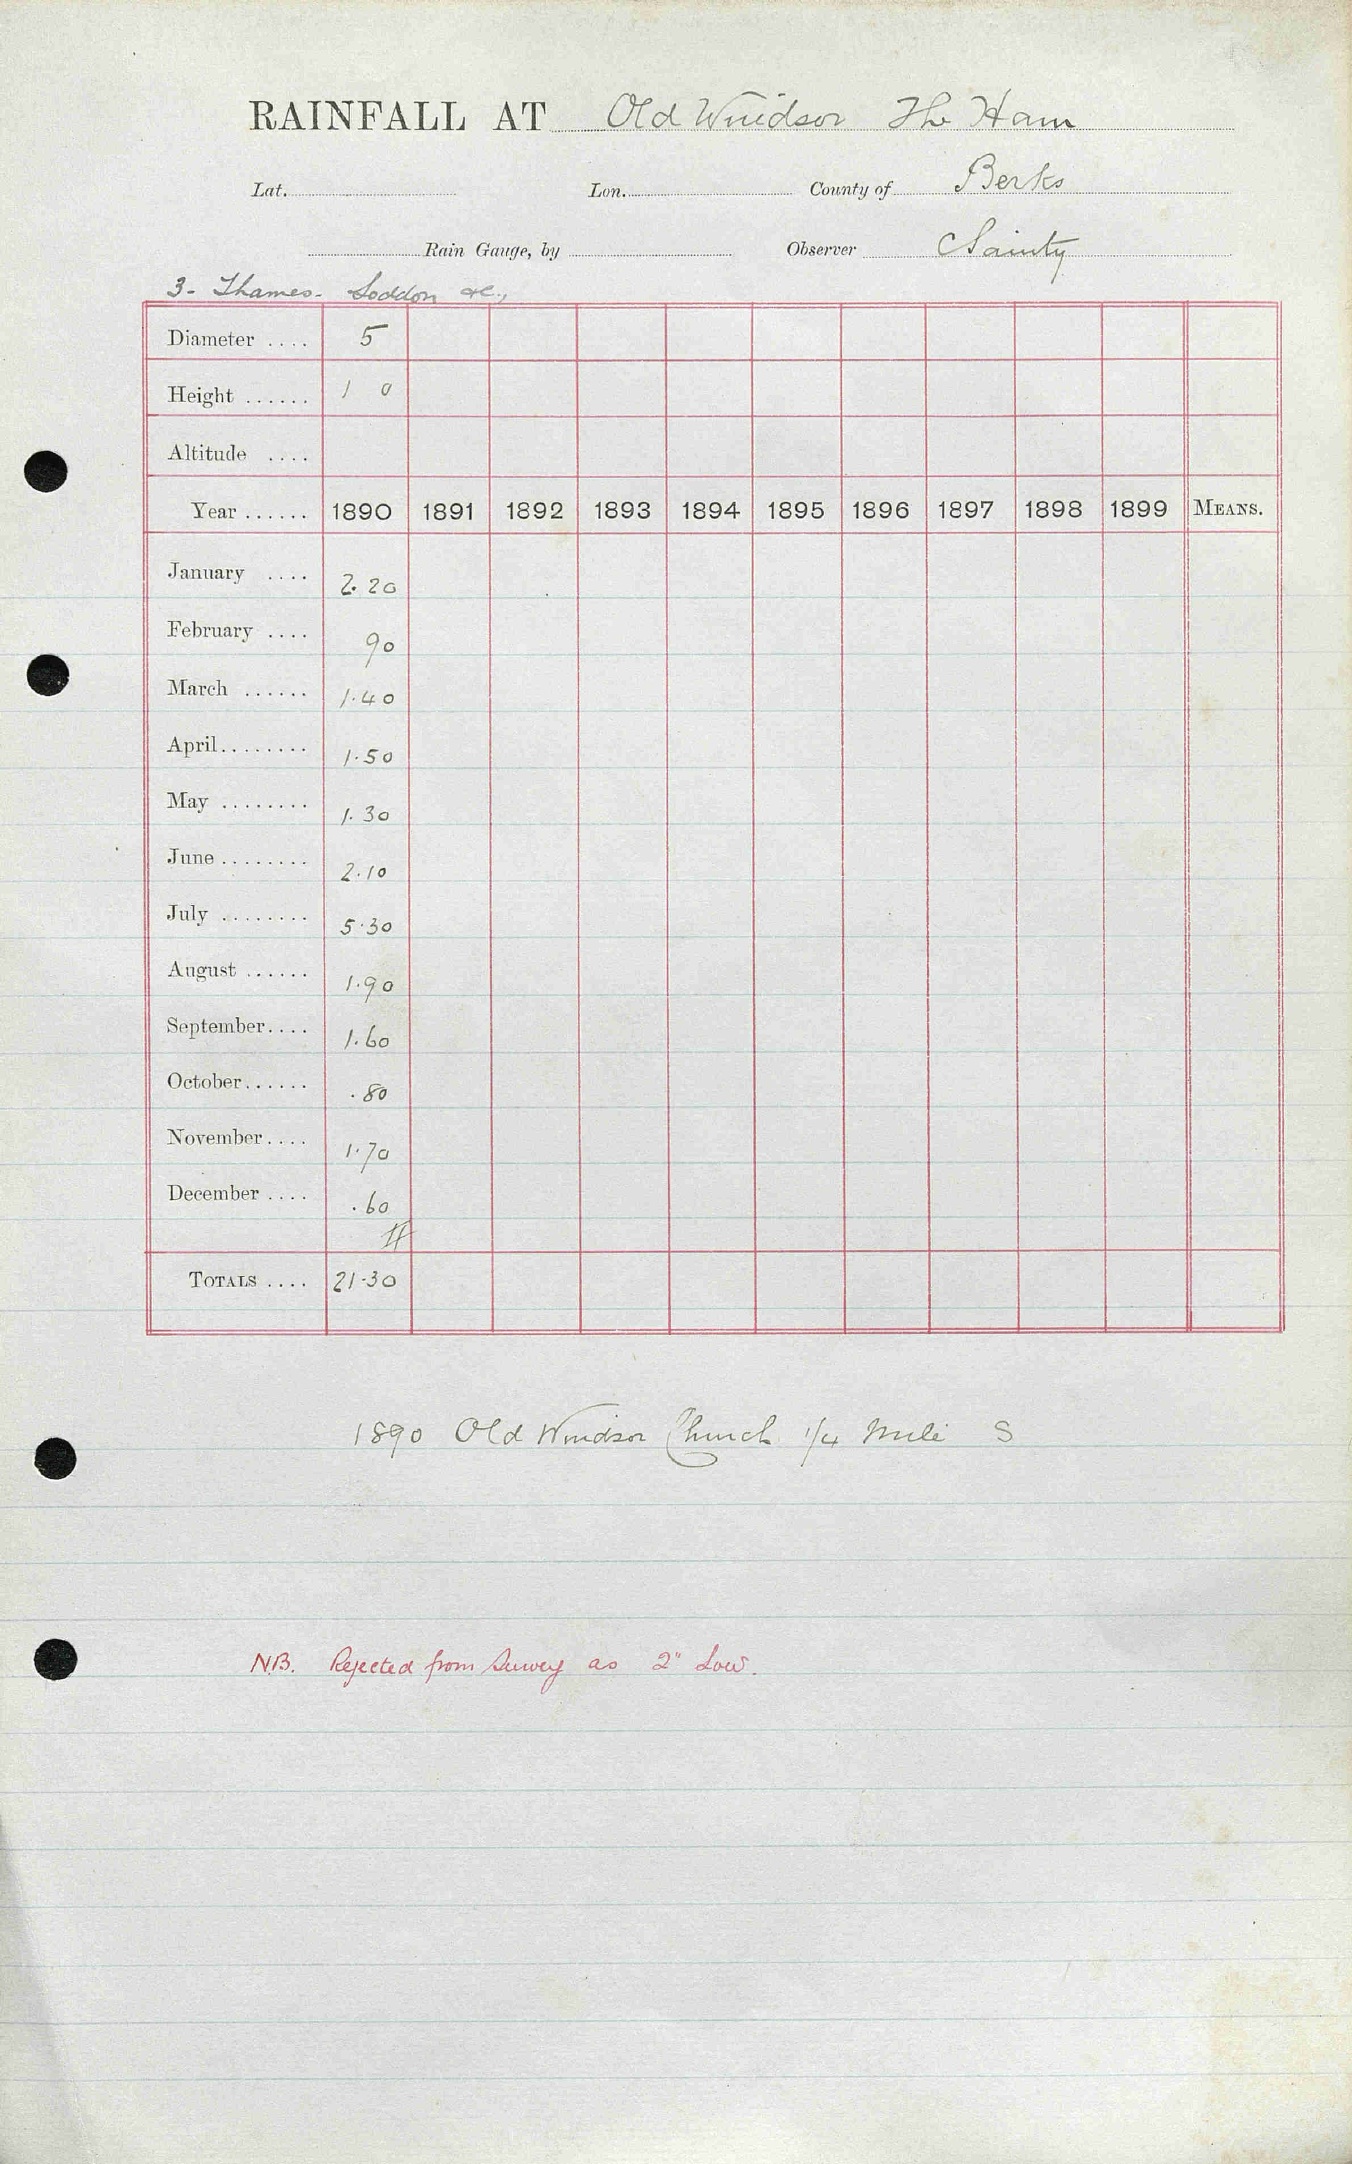 RAINFALL AT Old Windsor The Ham
Lat. Lon. County of Berks
Rain Gauge, by Observer Sainty
3- Thames. Loddon &c.,
Diameter .... 5
Height ...... 1 0
Altitude ....
Year ...... 1890 1891 1892 1893 1894 1895 1896 1897 1898 1899 MEANS.
January .... 2.20
February .... 90
March ...... 1.40
April........ 1.50
May ........ 1.30
June ........ 2.10
July ........ 5.30
August ...... 1.90
September.... 1.60
October...... .80
November.... 1.70
December .... .60
TOTALS .... 21.30
1890 Old Windsor Church 1/4 Mile S
N.B. Rejected from Survey as 2" Low.